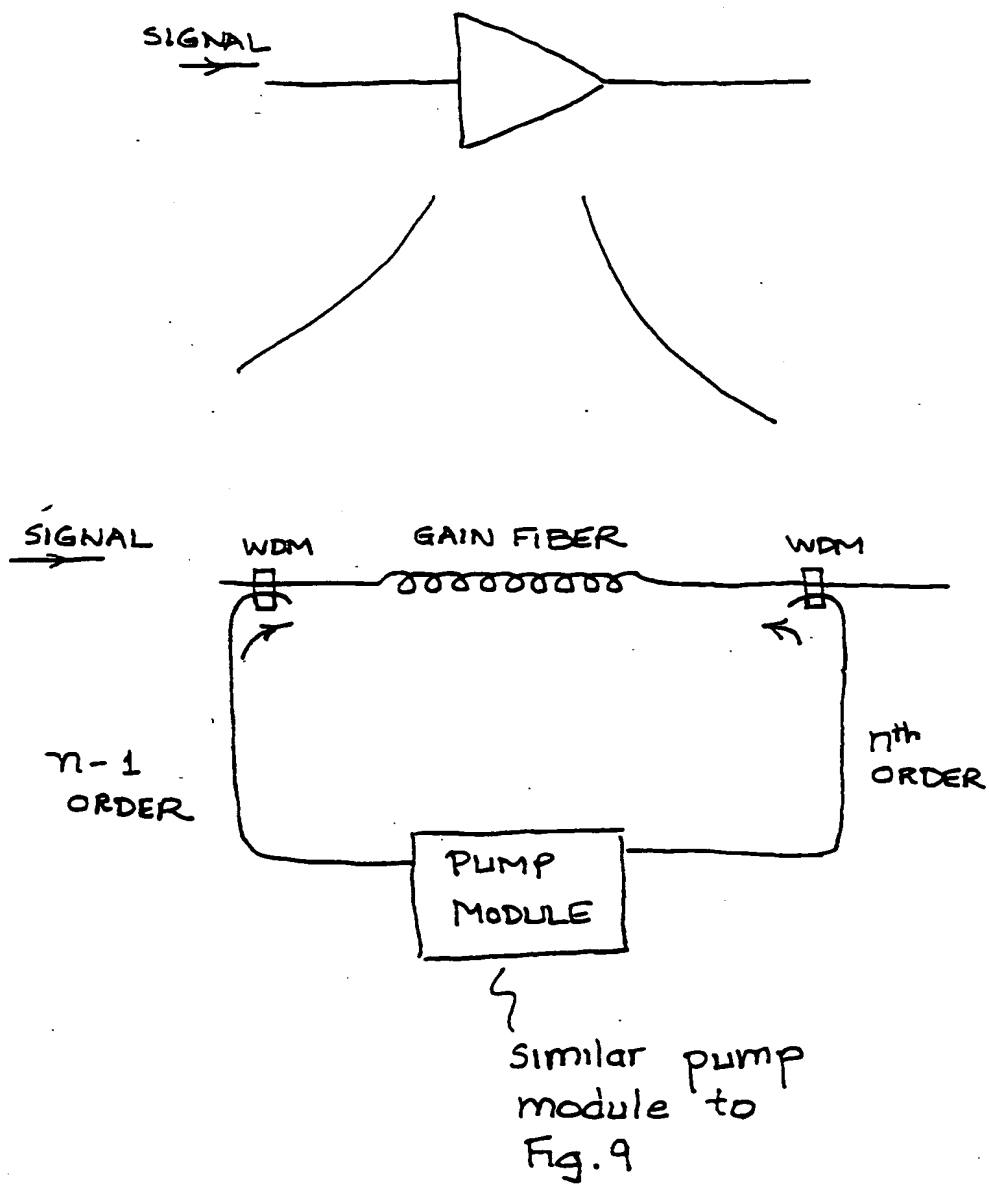 SIGNAL
SIGNAL
WDM
GAIN FIBER
WDM
n-1
ORDER
nth
ORDER
PUMP
MODULE
Similar pump
module to
Fig. 9